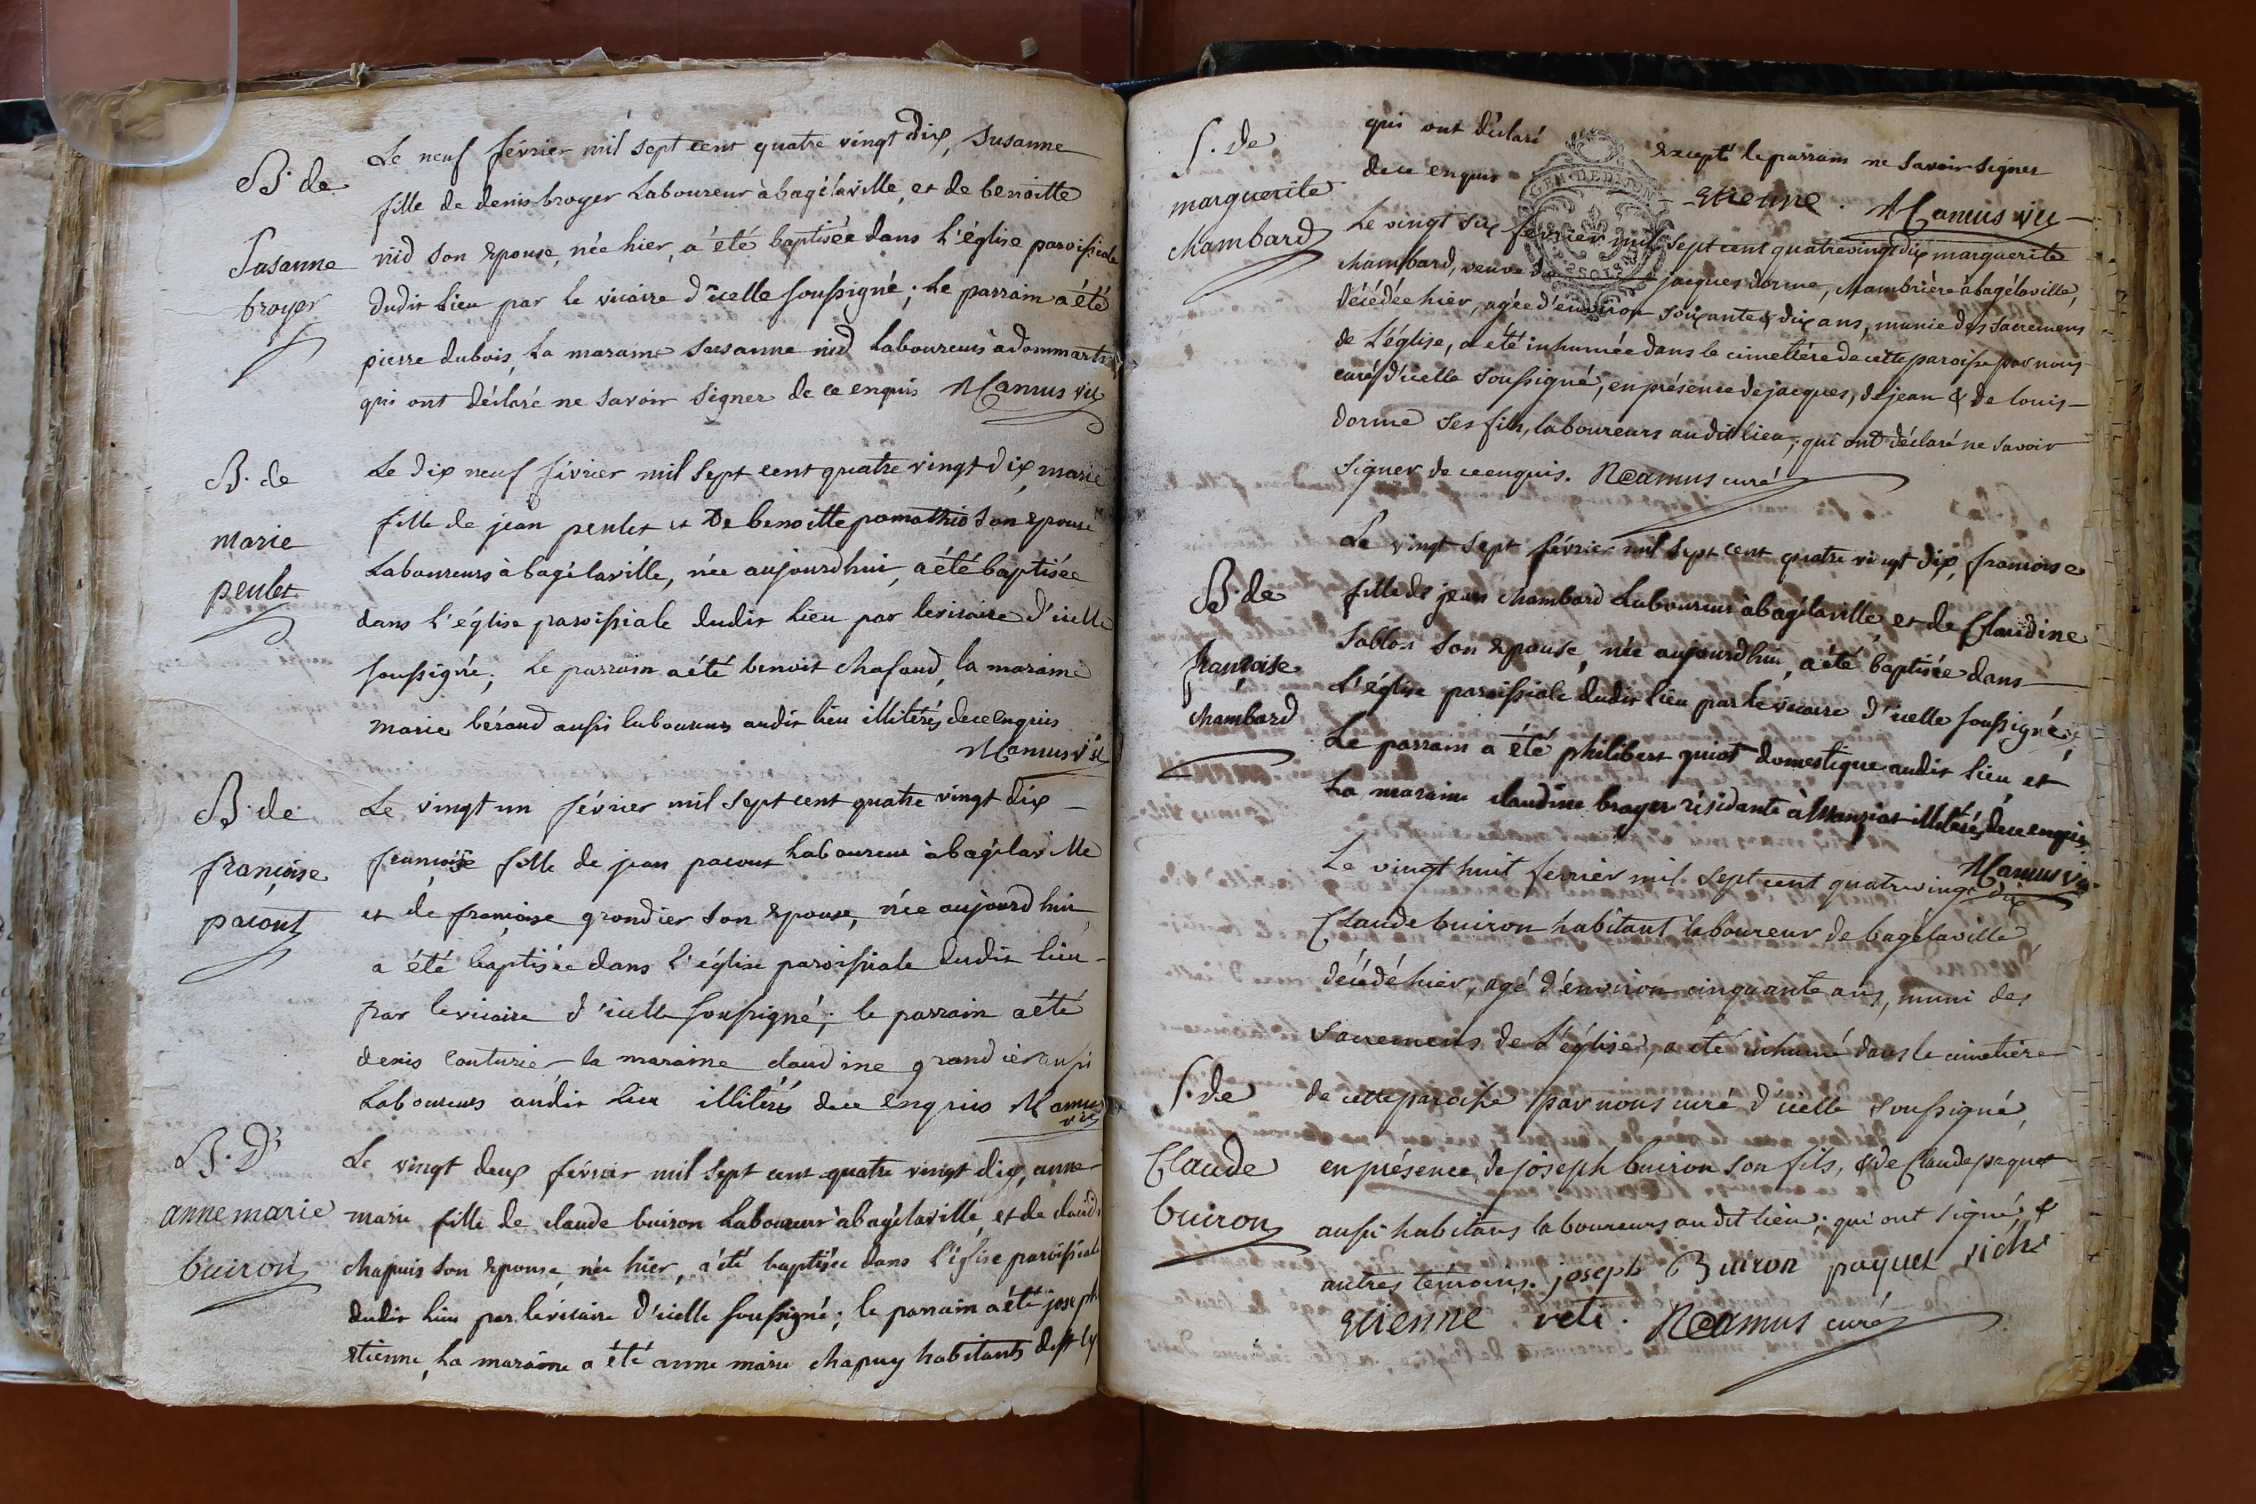 B. de
Susanne
broyer
Le neuf février mil sept cent quatre vingt dix, Susanne
fille de denis broyer Laboureur à bagélaville, et de benoitte
nid son epouse, née hier, a été baptisée dans l'église paroissiale
dudit Lieu par le vicaire d'icelle soussigné; Le parrain a été
pierre dubois, La maraine Susanne nid laboureurs à dommartin
qui ont déclaré ne savoir signer de ce enquis Mamus vic
B. de
marie
peulet
Le dix neuf février mil sept cent quatre vingt dix, marie
fille de jean peulet et De benoitte pomathio son epouse
Laboureurs à bagélaville, née aujourdhui, a été baptisée
dans l'église paroissiale dudit Lieu par levicaire d'icelle
soussigné; Le parrain a été benoit chafaud, la maraine
marie béraud aussi laboureurs audit lieu illiterés de ce enquis
Mamus vic
B. de
françoise
pacout
Le vingt un février mil sept cent quatre vingt dix
françoise fille de jean pacout Laboureur à bagélaville
et de françoise grondier son epouse, née aujourdhui
a été baptisée dans l'église paroissiale dudit lieu
par levicaire d'icelle soussigné; le parrain a été
denis Couturier, la maraine claudine grandier aussi
Laboureurs audit Lieu illitérés de ce enquis Mamus
vic
B. D'
anne marie
buiron
Le vingt deux février mil sept cent quatre vingt dix, anne
marie fille de claude buiron Laboureur à bagélaville, et de claudi
chapuis son epouse, née hier, a été baptisée dans l'église paroissiale
dudit lieu par levicaire d'icelle soussigné; le parrain a été joseph
etienne, La maraine a été anne marie chapuy habitants
qui ont déclaré excepté le parrain ne savoir signer
de ce enquis Etienne. Mamus vic
S. de
marguerite
chambard
Le vingt six février mil sept cent quatre vingt dix marguerite
chambard, veuve de jacques dorme, chambrière à bagélaville,
décédée hier, agée d'environ soixante & dix ans, munie des sacremens
de L'église, a été inhumée dans le cimetière de cette paroisse par nous
curé d'icelle soussigné, en présence de jacques, de jean & de louis
dorme ses fils, laboureurs au dit lieu; qui ont déclaré ne savoir
signer de ce enquis. Reamus curé
B. de
françoise
chambard
Le vingt sept février mil sept cent quatre vingt dix, françoise
fille de jean chambard Laboureur à bagélaville et de Claudine
Sablon son epouse, née aujourdhui, a été baptisée dans
L'église paroissiale dudit lieu par le vicaire d'icelle soussigné;
Le parrain a été philibert guiot domestique audit lieu, et
La maraine claudine broyer résidante à Manziat illiterés de ce enquis
Mamus vic
S. de
Claude
buiron
Le vingt huit fevrier mil sept cent quatre vingt dix
Claude buiron habitant laboureur de bagélaville,
décédé hier, agé d'environ cinquante ans, muni des
sacremens de L'église, a été inhumé dans le cimetière
de cette paroisse par nous curé d'icelle soussigné,
en présence de joseph buiron son fils, & de Claude paquet
aussi habitans laboureurs au dit lieu; qui ont signé &
autres temoins. joseph Buiron paquet
Etienne veti. Reamus curé